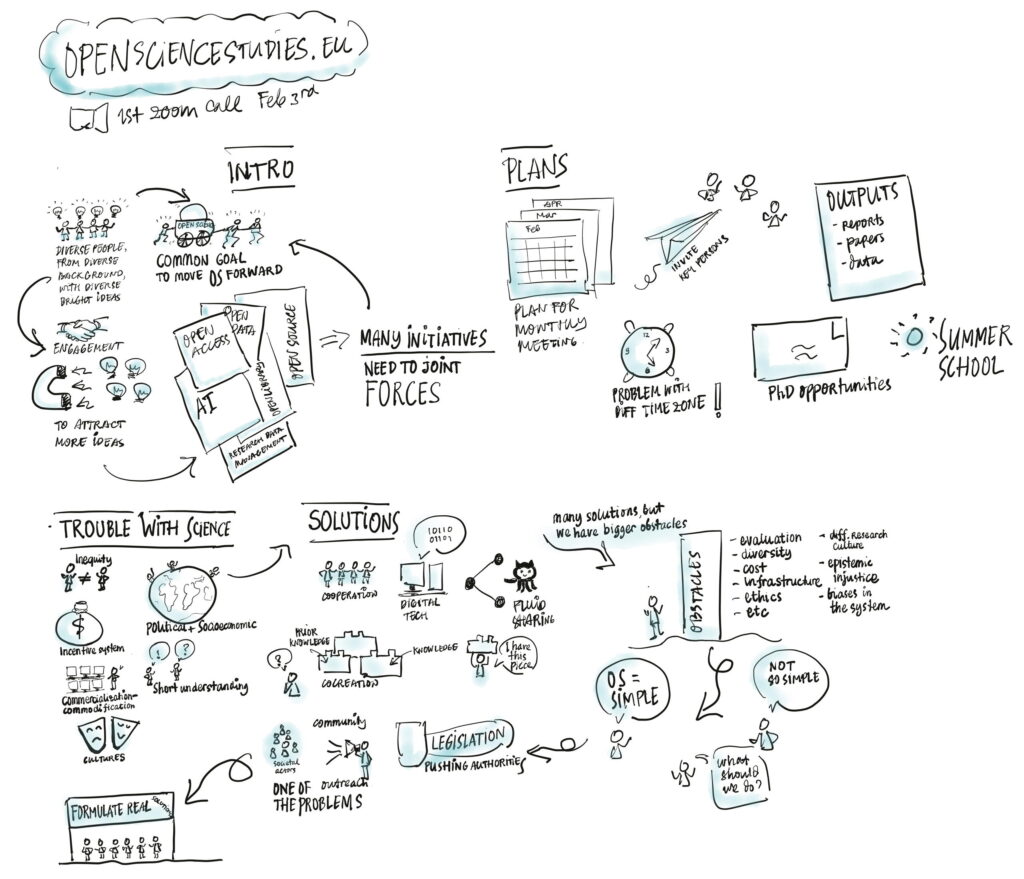 OPENSCIENCESTUDIES.EU
1st zoom call Feb 3rd
INTRO
DIVERSE PEOPLE,
FROM DIVERSE
BACKGROUND,
WITH DIVERSE
BRIGHT IDEAS
OPEN SCIENCE
COMMON GOAL
TO MOVE OS FORWARD
ENGAGEMENT
TO ATTRACT
MORE IDEAS
OPEN
ACCESS
OPEN
DATA
OPEN SOURCE
AI
RESEARCH DATA
MANAGEMENT
MANY INITIATIVES
NEED TO JOINT
FORCES
PLANS
APR
Mar
Feb
PLAN FOR
MONTHLY
MEETING
INVITE
KEY PERSONS
OUTPUTS
- reports
- papers
- data
12
3
6
9
PROBLEM WITH
DIFF TIME ZONE !
PhD opportunities
SUMMER
SCHOOL
TROUBLE WITH SCIENCE
Inequity
≠
$
Incentive system
Political + Socioeconomic
! ?
Short understanding
Commercialization-
commodification
CULTURES
SOLUTIONS
COOPERATION
10110
01101
DIGITAL
TECH
FLUID
SHARING
PRIOR
KNOWLEDGE
KNOWLEDGE
?
COCREATION
I have
this
piece
many solutions, but
we have bigger obstacles
OBSTACLES
- evaluation
- diversity
- cost
- infrastructure
- ethics
- etc
- diff. research
culture
- epistemic
injustice
- biases in
the system
OS =
SIMPLE
NOT
SO SIMPLE
what
should
we do?
LEGISLATION
PUSHING AUTHORITIES
community
outreach
societal
actors
ONE OF
THE PROBLEMS
FORMULATE REAL
SOLUTIONS